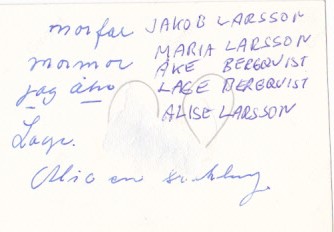 morfar JAKOB LARSSON
mormor MARIA LARSSON
jag åke ÅKE BERGQUIST
LAGE BERGQUIST
ALISE LARSSON
Lage.
en